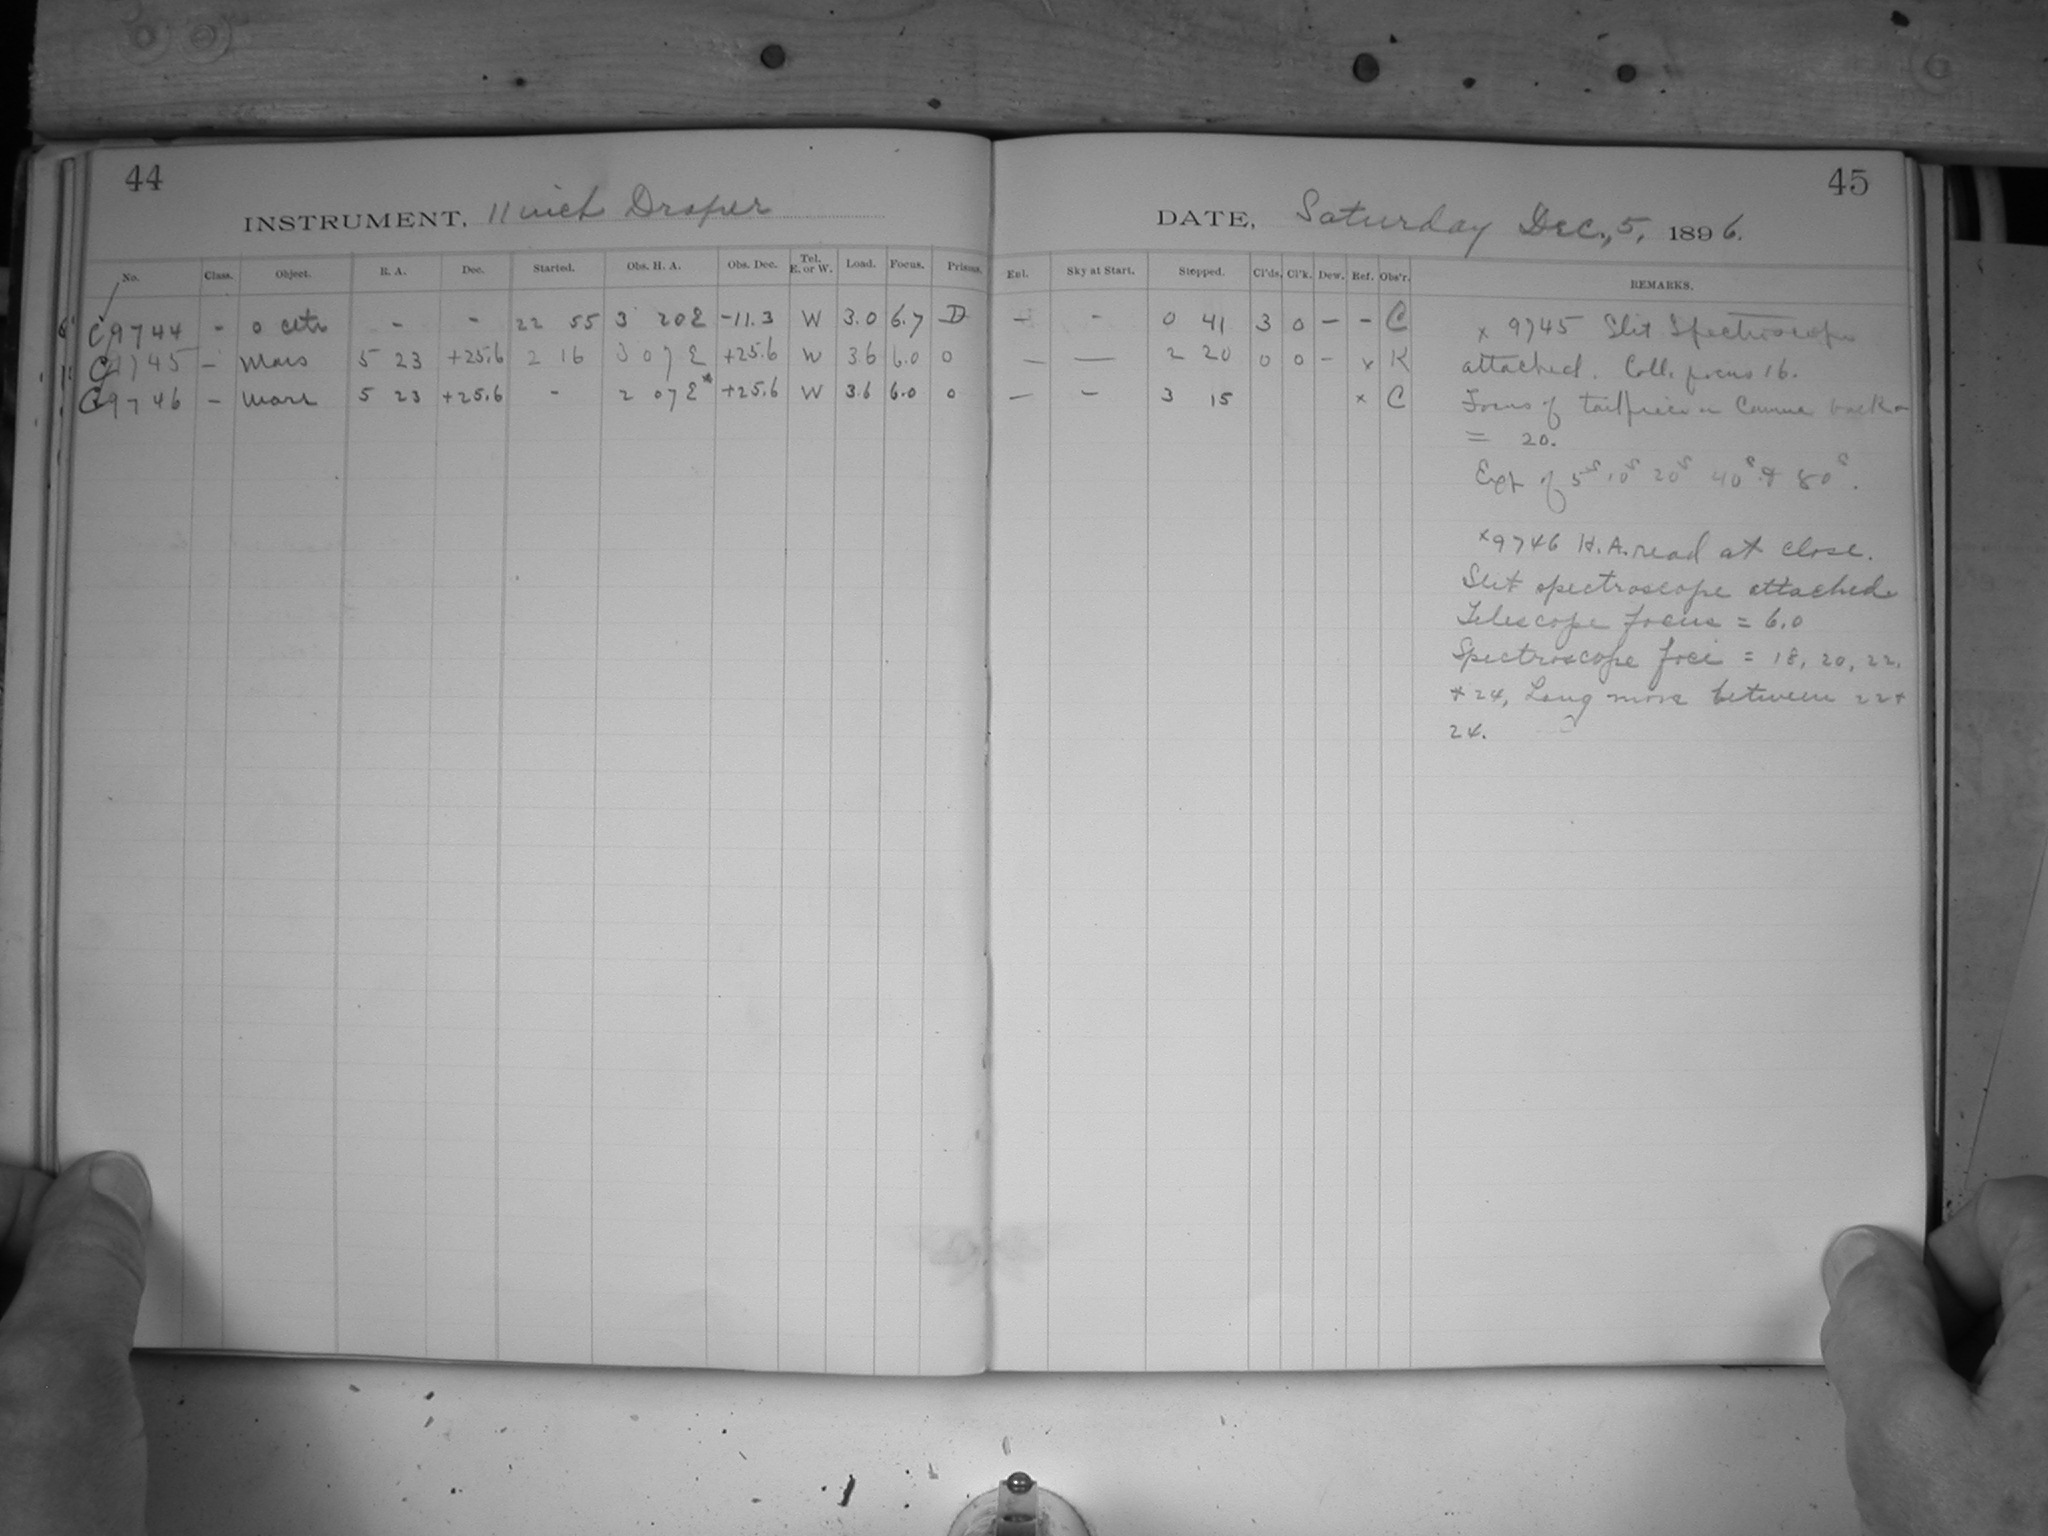 44
INSTRUMENT, 11 inch Draper
No. Class. Object. R. A. Dec. Started. Obs. H. A. Obs. Dec. Tel. E. or W. Load. Focus. Prisms.
C 9744 - o Ceti - - 22 55 3 20 E -11.3 W 3.0 6.7 D
C 9745 - Mars 5 23 +25.6 2 16 3 07 E +25.6 W 3.6 6.0 0
C 9746 - Mars 5 23 +25.6 - 2 07 E* +25.6 W 3.6 6.0 0
45
DATE, Saturday Dec., 5, 1896.
Enl. Sky at Start. Stopped. Cl'ds. Cl'k. Dew. Ref. Obs'r. REMARKS.
- - 0 41 3 0 - - C
- - 2 20 0 0 - x K
- - 3 15 x C
x 9745 Slit Spectroscope
attached. Coll. focus 16.
Focus of tailpiece
= 20.
Exp of 5s 10s 20s 40s & 80s.
x 9746 H.A. read at close.
Slit spectroscope attached
Telescope focus = 6.0
Spectroscope foci = 18, 20, 22,
+ 24, Long move between 22 +
24.